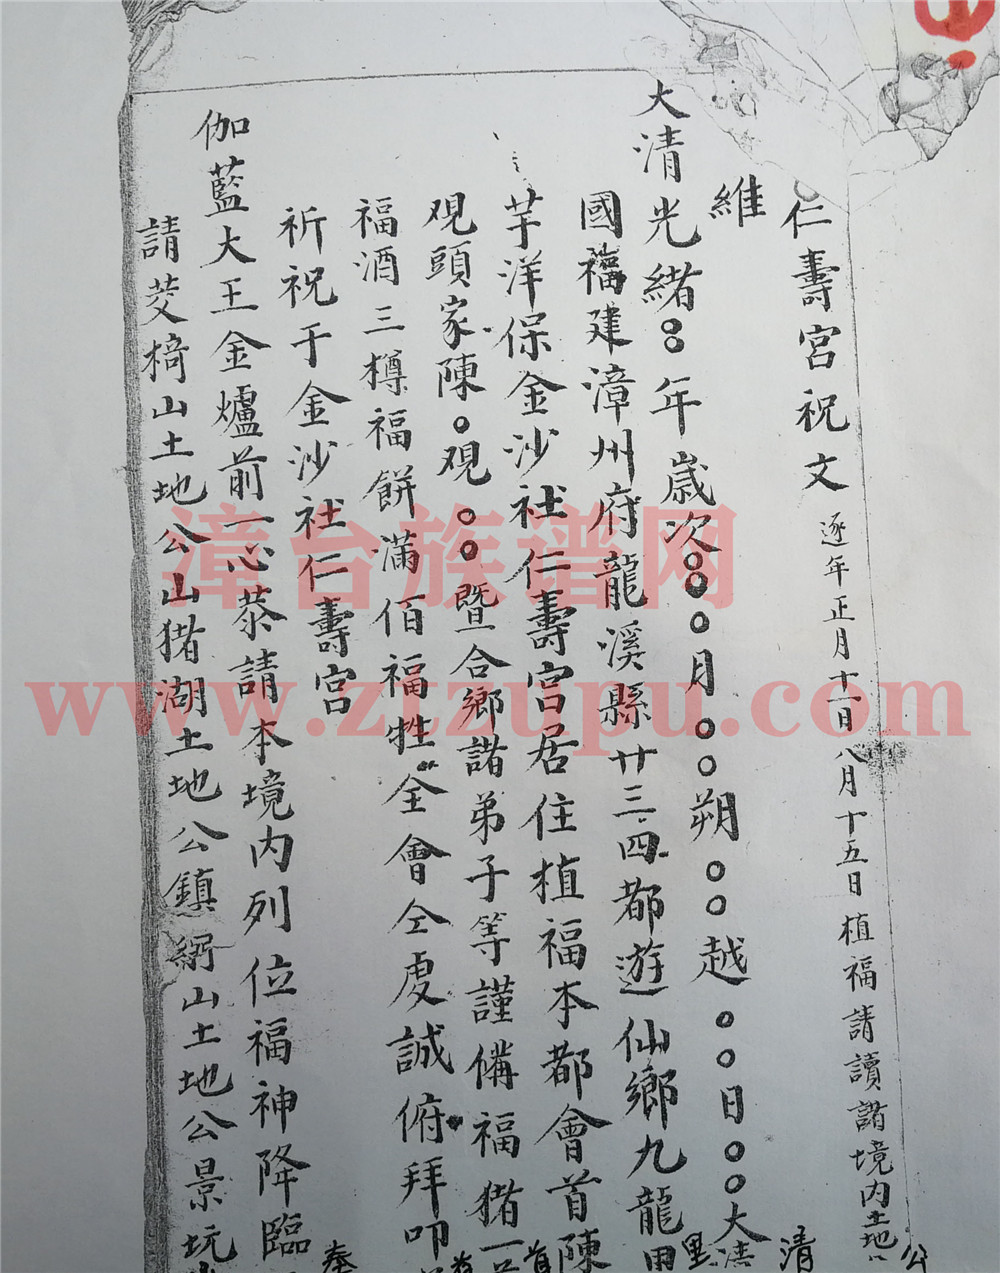 仁壽宮祝文 逐年正月十一日八月十五日植福請讀諸境内土地公
維
大清光緒 年歲次 月 朔 越 日 大清
國福建漳州府龍溪縣廿三四都遊仙鄉九龍里
芋洋保金沙社仁壽宮居住植福本都會首陳
观頭家陳 观 暨合鄉諸弟子等謹備福猪一
福酒三樽福餅滿佰福牲仝會仝虔誠俯拜叩
祈祝于金沙社仁壽宮
伽藍大王金爐前一心恭請本境内列位福神降臨
請茭椅山土地公山猪湖土地公鎮網山土地公景坑
漳台族谱网
www.ztzupu.com